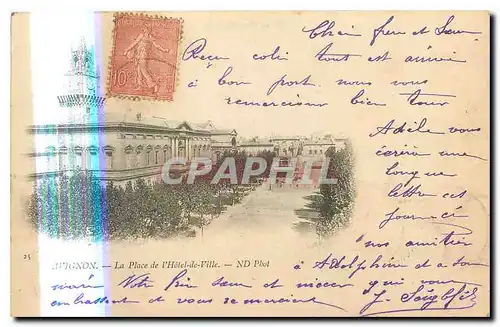 Cher frère et Sœur
Reçu colis tout est arrivé
à bon port nous vous
remercions bien tous
Adèle vous
écrira une
longue
lettre cet
journée
nos amitiés
à Adolphine et a son
mari
Votre
Sœur et
qui vous
embrassent et vous remercient
J.
10
CPARAMA
25
AVIGNON. — La Place de l'Hôtel-de-Ville. — ND Phot